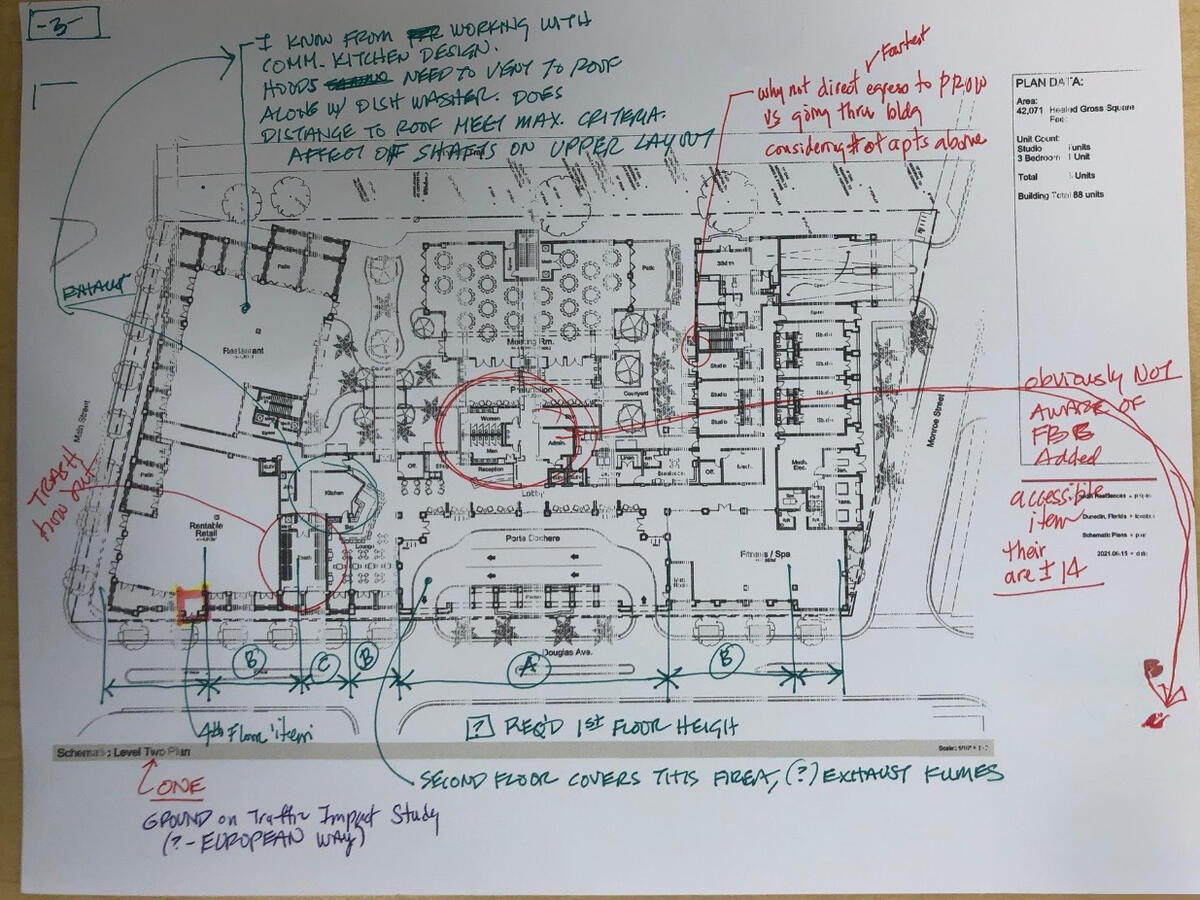 -3-
I KNOW FROM WORKING WITH
COMM. KITCHEN DESIGN.
HOODS NEED TO VENT TO ROOF
ALONG W/ DISH WASHER. DOES
DISTANCE TO ROOF MEET MAX. CRITERIA.
AFFECT OFF SHAFTS ON UPPER LAYOUT
Fastest
why not direct egress to PROW
vs going thru bldg
considering # of apts above
PLAN DATA:
Area:
42,071 Heated Gross Square
Feet
Unit Count:
Studio units
3 Bedroom 1 Unit
Total Units
Building Total 88 units
EXHAUST
Patio
Restaurant
Meeting Rm.
Patio
Courtyard
Studio
Studio
Studio
Studio
Studio
Studio
Main Street
Monroe Street
Women
Men
Admin.
Reception
Lobby
Off.
Off.
Mech.
Mech.
Elec.
Patio
Kitchen
Lounge
Rentable
Retail
Trash
Porte Dochere
Fitness / Spa
Douglas Ave.
TRASH
how out
obviously NOT
AWARE OF
FBB
Added
accessible
item
their
are ± 14
Residences
Dunedin, Florida
Schematic Plans
2021.06.15
B
C
B
A
B
4th Floor item
? REQ'D 1st FLOOR HEIGH
Schematic Level Two Plan
ONE
SECOND FLOOR COVERS THIS AREA, (?) EXHAUST FUMES
GROUND on Traffic Impact Study
(? - EUROPEAN WAY)
B